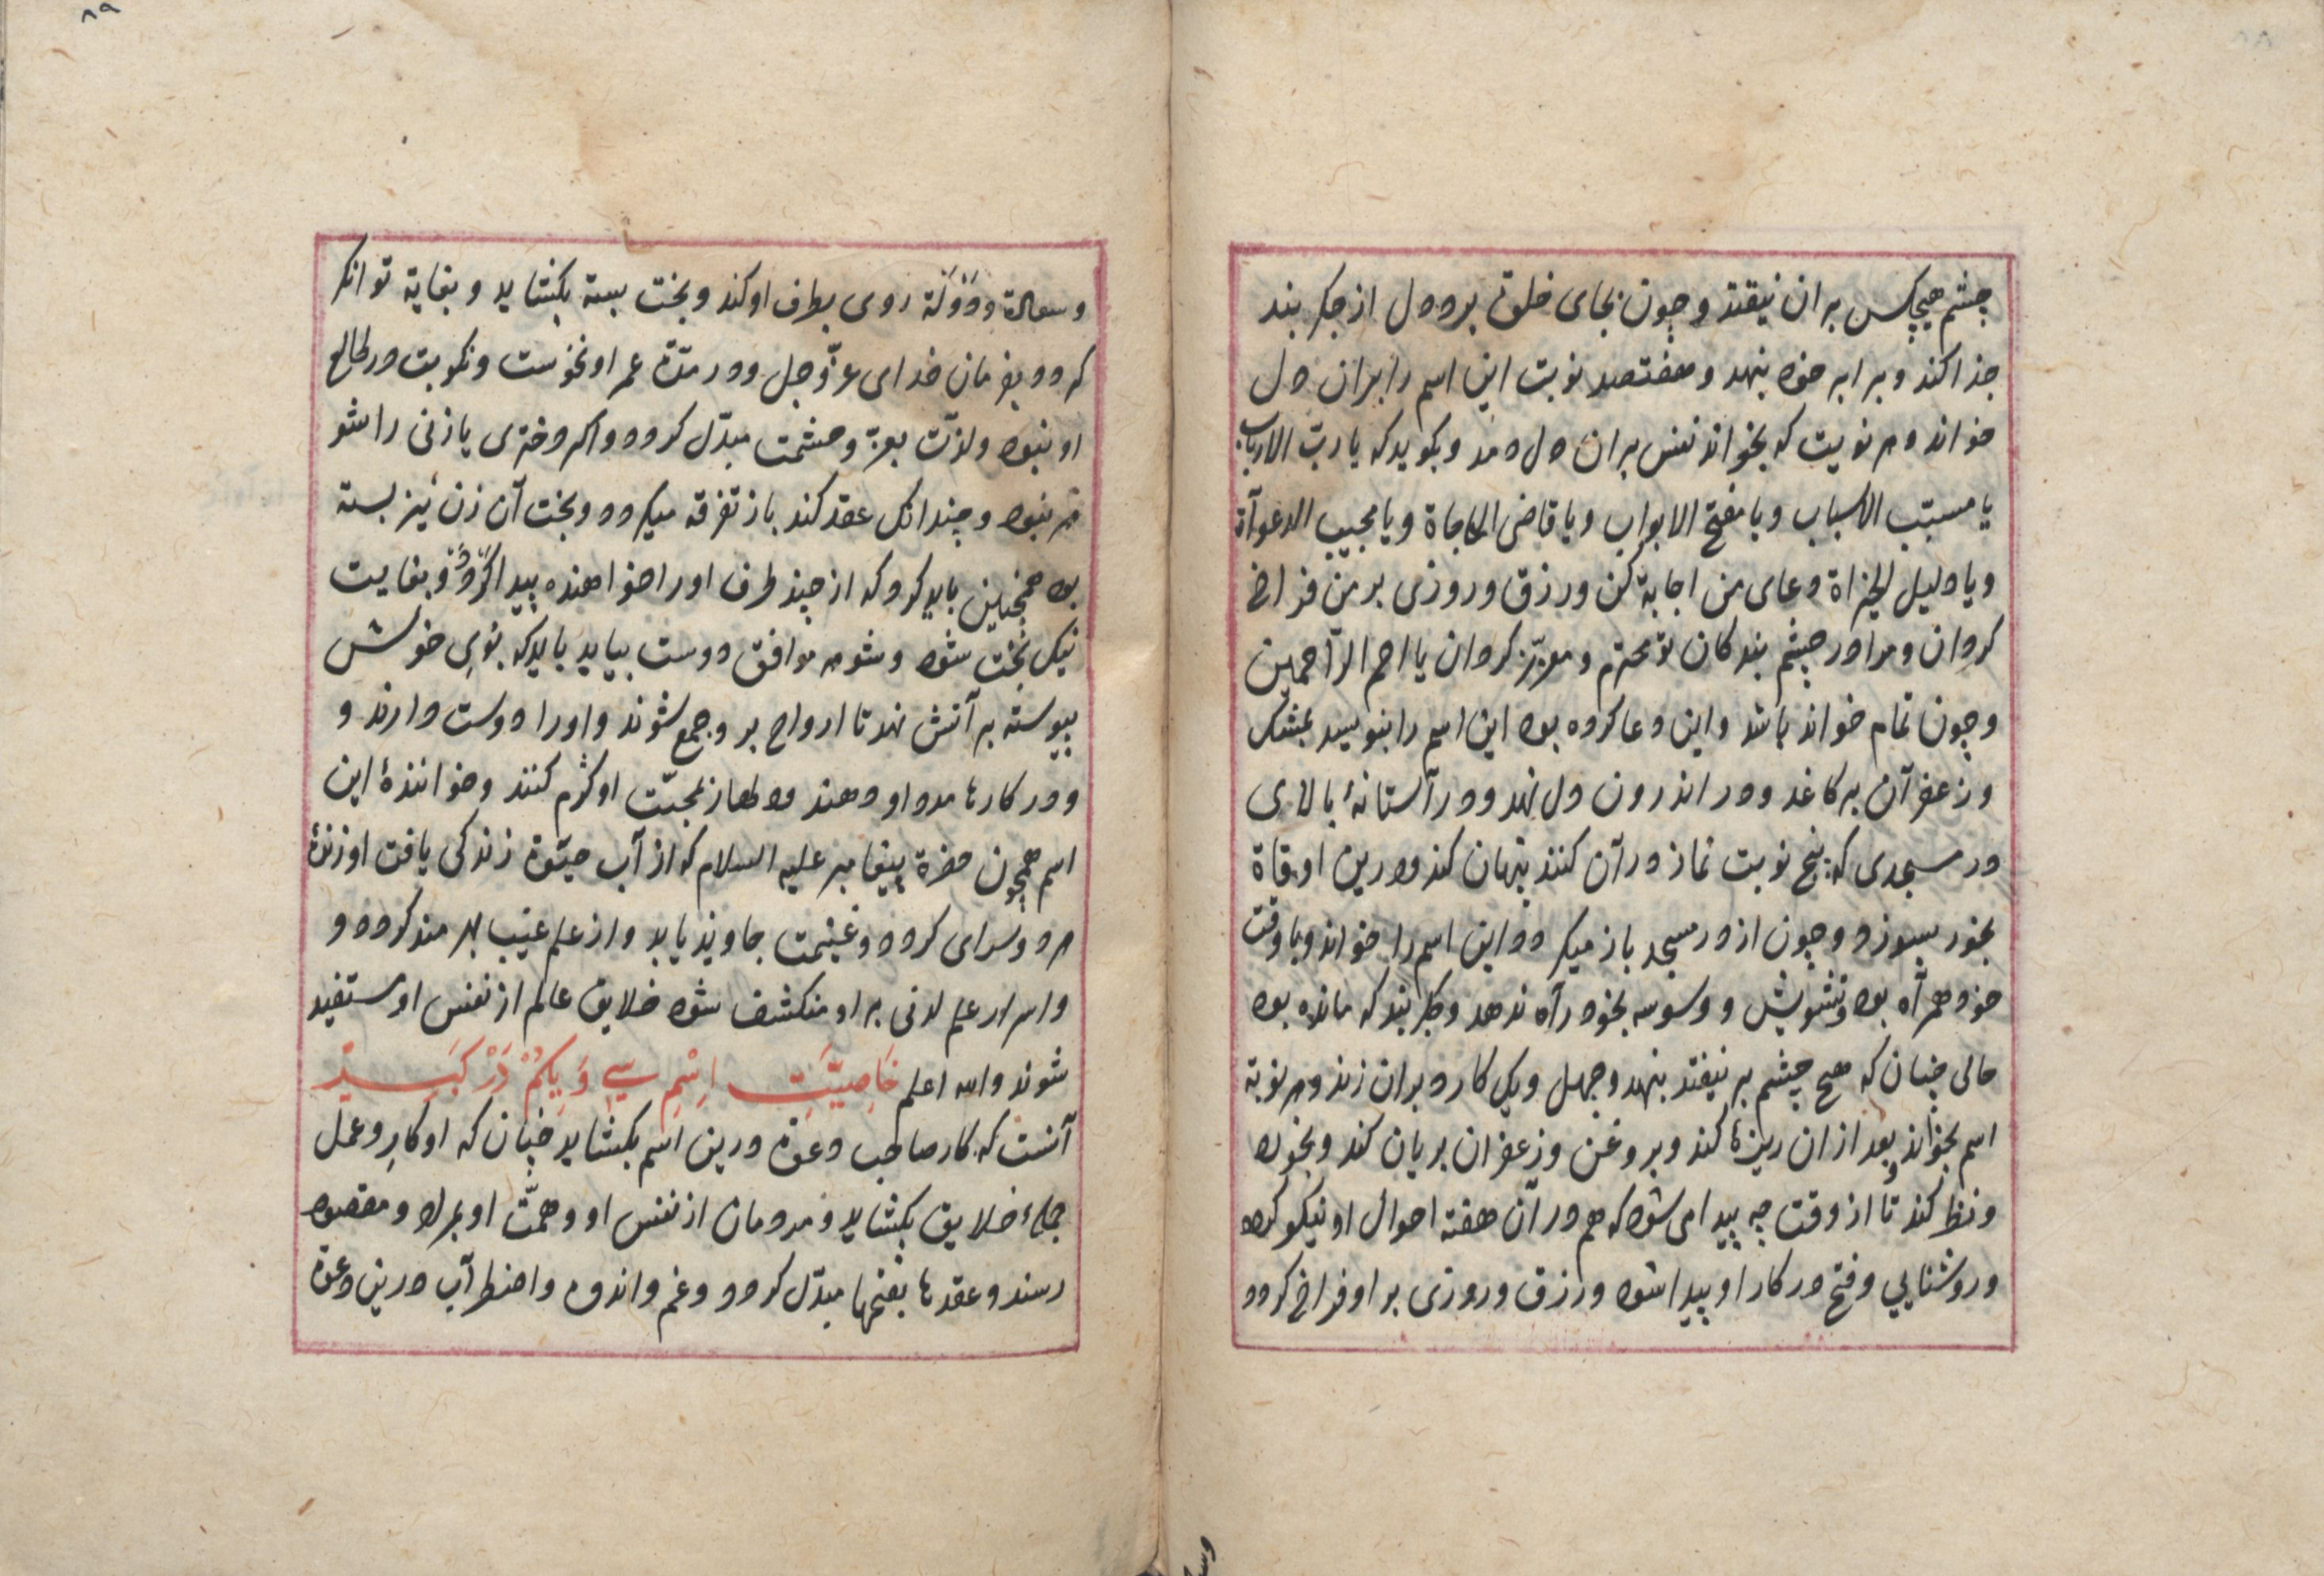 چشم هیچکس بران نیفتد و چون بجای خلوت برد و دل از جکر بند
جدا کند و برابر خود بنهد و هفتصد نوبت این اسم را بران دل
خواند و هر نوبت که بخواند نفس بران دل دمد و بکوید که یا رب الارباب
یا مسبّب الاسباب و یا مفتح الابواب و یا قاضی الحاجاة و یا مجیب الدعوآة
و یا دلیل الخیراة دعای من اجابة کن و رزق و روزی بر من فراخ
کردان و مرا در چشم بندکان تو محترم و معزّز کردان یا ارحم الرّاحمین
و چون تمام خواند باشد و این دعا کرده بود این اسم را بنویسد بمشک
و زعفرآن بر کاغد و در اندرون دل نهد و در آستانۀ بالای
در مسجدی که پنج نوبت نماز در آن کنند پنهان کند و درین اوقاة
بخور بسوزد و چون از در مسجد باز میکردد این اسم را خواند و با وقت
خود همرآه بود و تشویش و وسوسه بخود رآه ندهد و جکر بند که مانده بود
حالی چنان که هیچ چشم بر نیفتد بنهد و چهل و یک کارد بران زند و هر نوبة
اسم بخواند و بعد ازان ریزها کند و بروغن و زعفران بریان کند و بخورد
و نظر کند تا از وقت چه پیدا می شود که هم در آن هفته احوال او نیکو کردد
و روشنایی و فتح در کار او پیدا شود و رزق و روزی بر او فراخ کردد
۸۹
و سعادة و دَوْلَة روی بطرف او کند و بخت بسته بکشاید و بغایة توانکر
کردد بفرمان خدای عزّ و جل و در مدّة عمر او نحوست و نکوبت در طالع
او نبود و لذّت بعزّ و حشمت مبدّل کردد و اکر دختری یا زنی را شو
هر نبود و چندانک عقد کند باز تفرقه میکردد و بخت آن زن نیز بسته
بود همچنین باید کرد که از چند طرف او را خواهنده پیدا کردد و بغایت
نیک بخت شود و شوهر موافق دوست بیابد باید که بوی خوش
پیوسته بر آتش نهد تا ارواح بر و جمع شوند و او را دوست دارند و
و در کارها مدد او دهند و دلها از محبّت او کرم کنند و خوانندۀ این
اسم همچون حضرة پیغامبر علیه السلام که از آب حیوة زندکی یافت او زندۀ
هر دو سرای کردد و غنیمت جاوید یابد و از علم غیب بهرمند کردد و
و اسرار علم لدنی بر او منکشف شود خلایق عالم از نفس او مستفید
شوند والله اعلم خَاصِیَّتِ اِسْمِ سِی وَ یِکُمْ دَرْ کَبِیر
آنست که کار صاحب دعوة درین اسم بکشاید چنان که او کار و عمل
جملۀ خلایق بکشاید و مردمان از نفس او و همّت او بمراد و مقصود
رسند و عقدها بفتحها مبدّل کردد و غم و اندوه و اضطرآب درین دعوة